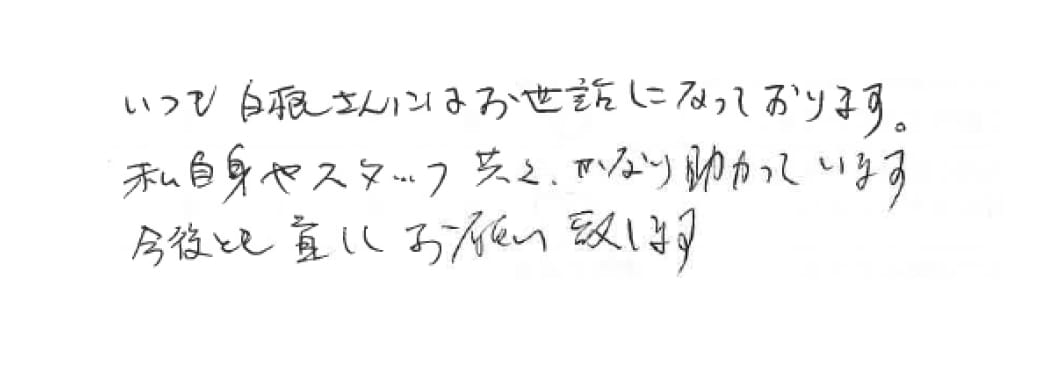 いつも白根さんにはお世話になっております。
私自身やスタッフ共々、かなり助かっています
今後とも宜しくお願い致します